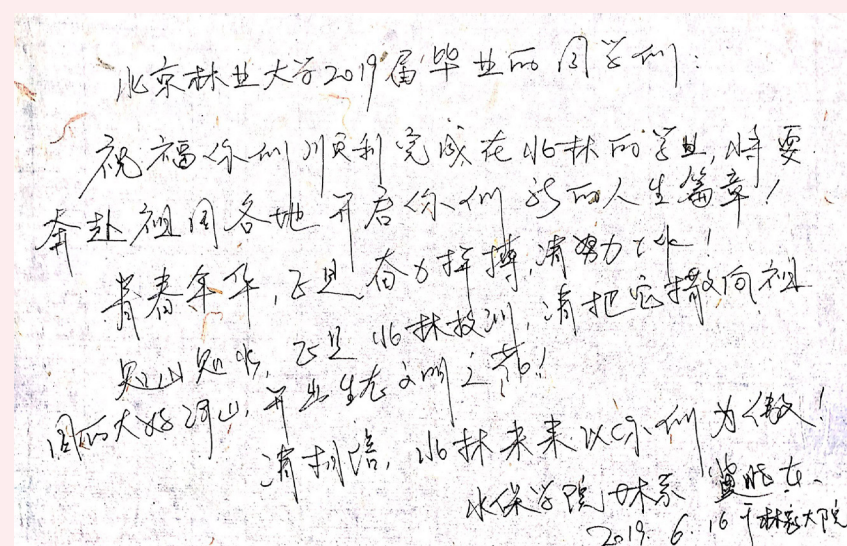 北京林业大学2019届毕业的同学们:
祝福你们顺利完成在北林的学业,将要
奔赴祖国各地开启你们新的人生篇章!
青春年华,正是奋力拼搏,请努力!
知山知水,正是北林校训,请把它撒向祖
国的大好河山,开出生态文明之花!
请相信,北林未来以你们为傲!
水保学院
2019.6.16于林家大院